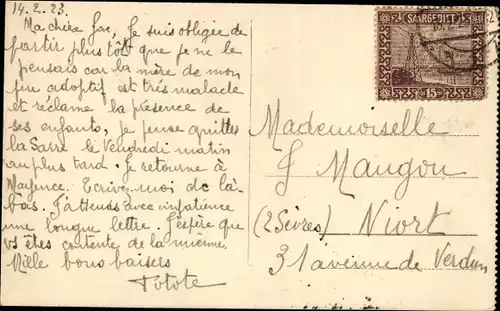 14.2.23.
Ma chère Jac, Je suis obligée de
partir plus tôt que je ne le
pensais car la mère de mon
adoptif est très malade
et réclame la présence de
ses enfants, je pense quitter
la Sarre le Vendredi matin
au plus tard. Je retourne à
Mayence. Ecrivez moi de là-
bas. J'attends avec impatience
une longue lettre. J'espère que
vs êtes contente de la mienne.
Mille bons baisers
Totote
SAARGEBIET
15
Mademoiselle
J Maugou
(2 Sèvres) Niort
31 avenue de Verdun